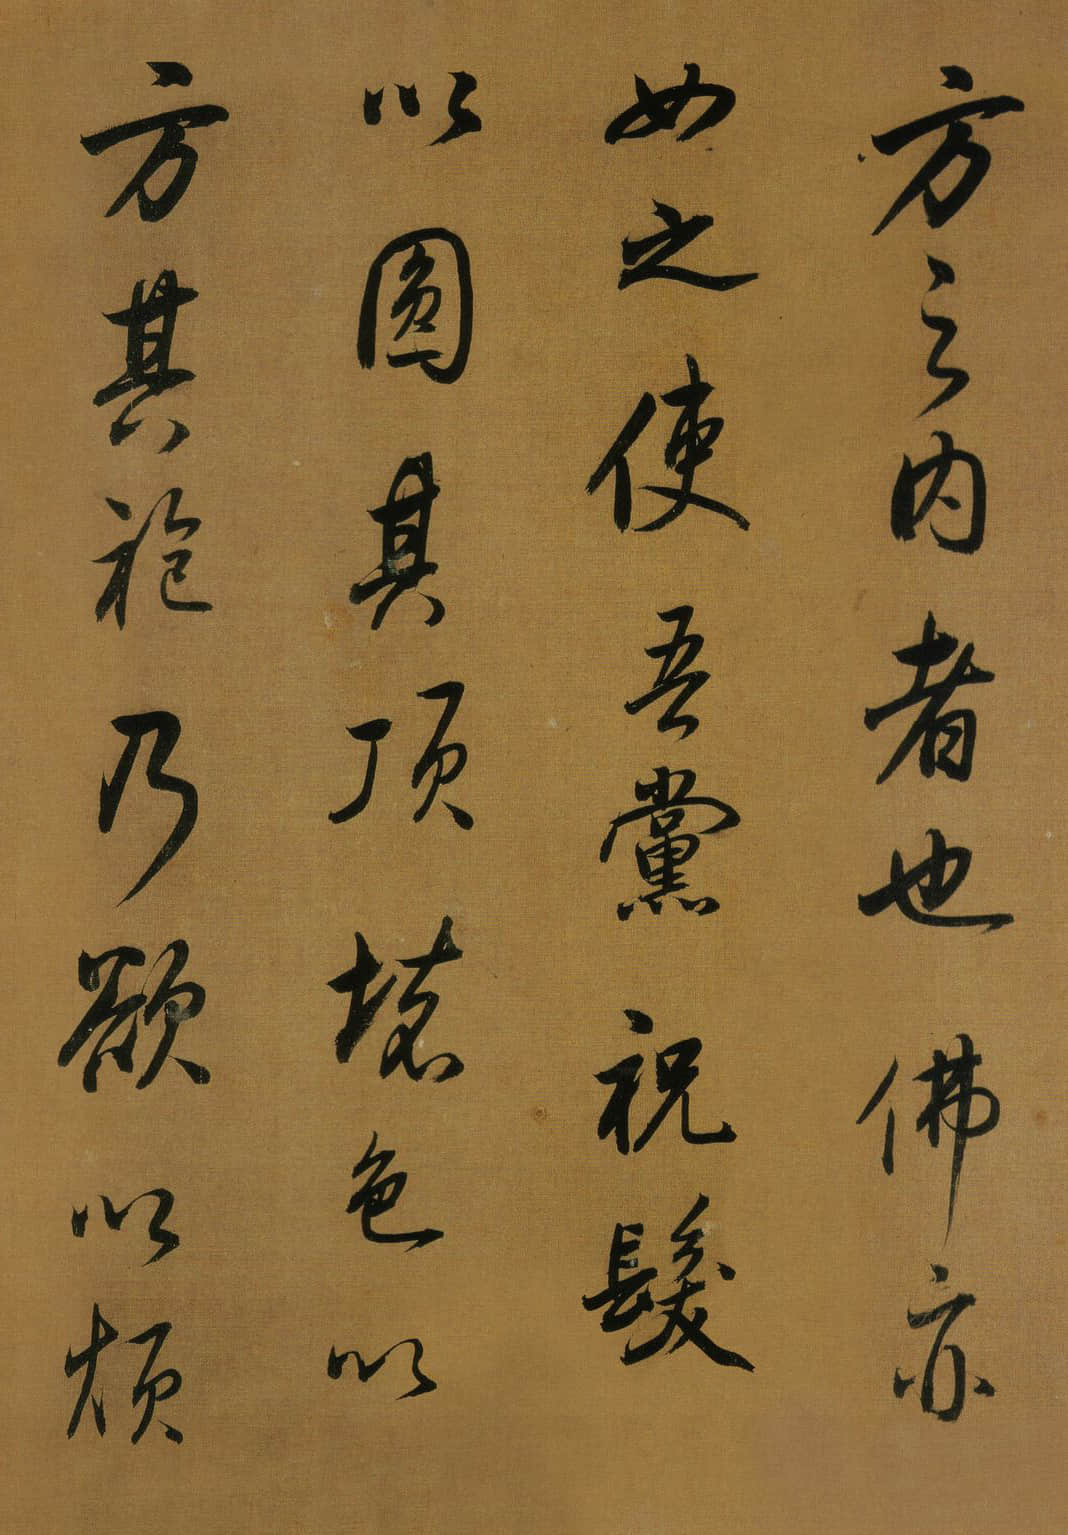 方之內者也佛亦
如之使吾黨祝髮
以圓其頂壞色以
方其袍乃欲以煩